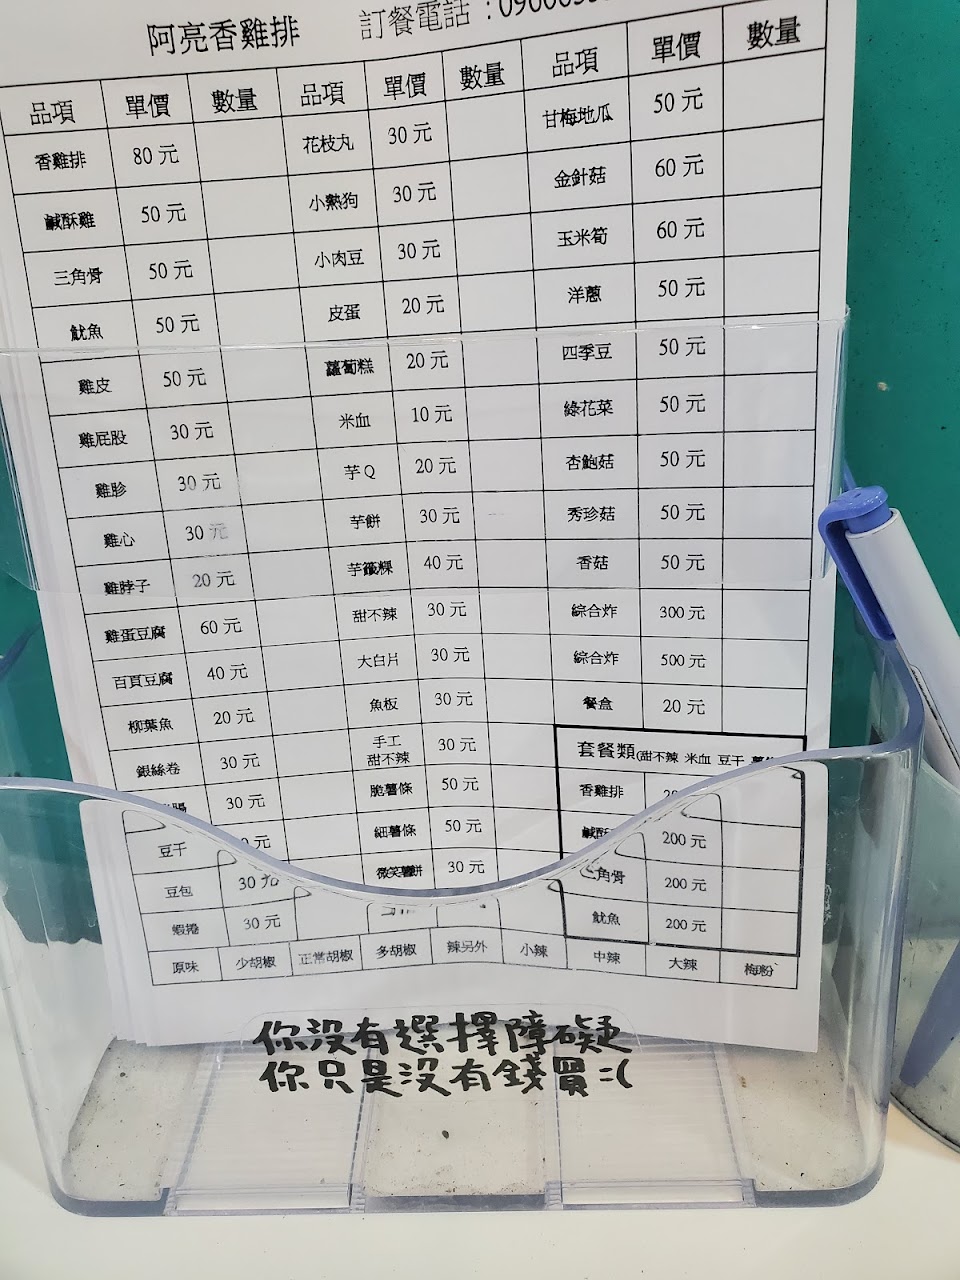 阿亮香雞排 訂餐電話：
品項 單價 數量 品項 單價 數量 品項 單價 數量
香雞排 80 元 花枝丸 30 元 甘梅地瓜 50 元
鹹酥雞 50 元 小熱狗 30 元 金針菇 60 元
三角骨 50 元 小肉豆 30 元 玉米筍 60 元
魷魚 50 元 皮蛋 20 元 洋蔥 50 元
雞皮 50 元 蘿蔔糕 20 元 四季豆 50 元
雞屁股 30 元 米血 10 元 綠花菜 50 元
雞胗 30 元 芋Q 20 元 杏鮑菇 50 元
雞心 30 元 芋餅 30 元 秀珍菇 50 元
雞脖子 20 元 芋籤粿 40 元 香菇 50 元
雞蛋豆腐 60 元 甜不辣 30 元 綜合炸 300元
百頁豆腐 40 元 大白片 30 元 綜合炸 500元
柳葉魚 20 元 魚板 30 元 餐盒 20 元
銀絲卷 30 元 手工甜不辣 30 元 套餐類(甜不辣 米血 豆干
30 元 脆薯條 50 元 香雞排
豆干 元 細薯條 50 元 鹹酥 200 元
豆包 30 元 微笑薯餅 30 元 三角骨 200 元
蝦捲 30 元 魷魚 200 元
原味 少胡椒 正常胡椒 多胡椒 辣另外 小辣 中辣 大辣 梅粉
你没有選擇障礙
你只是没有錢買:(